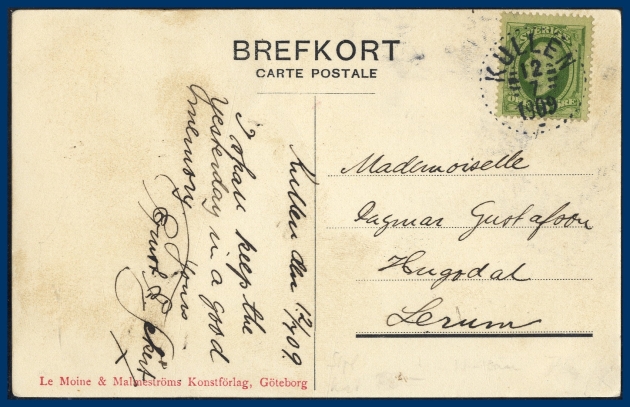 BREFKORT
CARTE POSTALE
KULLEN
12
7
1909
SVERIGE
Kullen den 12/7 09.
I shall keep the
yesterday in a good
memory
Yours
Mademoiselle
Dagmar Gustafson
Hugodal
Lerum
Le Moine & Malmeströms Konstförlag, Göteborg